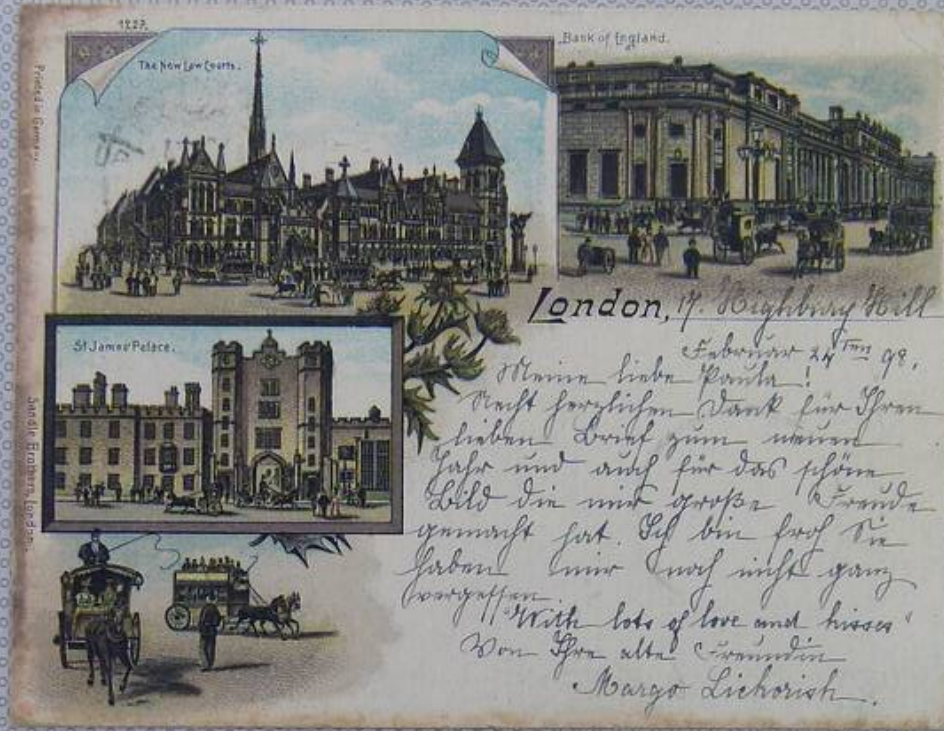 1227.
The New Law Courts.
Bank of England.
Printed in Germany.
St James' Palace.
Sandle Brothers, London.
London, 17. Highbury Hill
Februar 24ten 98.
Meine liebe Paula!
Recht herzlichen Dank für Ihren
lieben Brief zum neuen
Jahr und auch für das schöne
Bild die mir große Freude
gemacht hat. Ich bin froh Sie
haben mir noch nicht ganz
vergessen.
"With lots of love and kisses"
Von Ihre alte Freundin
Margo Lickorish.